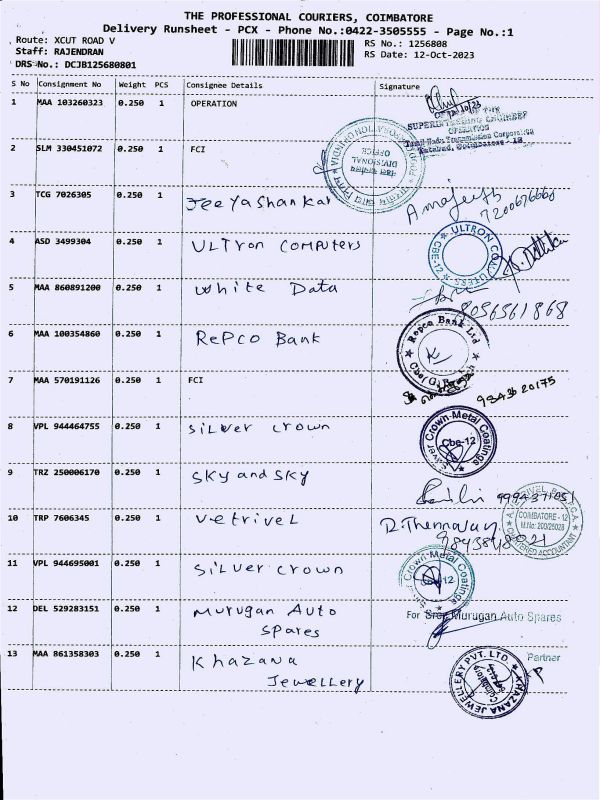 THE PROFESSIONAL COURIERS, COIMBATORE
Delivery Runsheet - PCX - Phone No.:0422-3505555 - Page No.:1
Route: XCUT ROAD V
RS No.: 1256808
Staff: RAJENDRAN
RS Date: 12-Oct-2023
DRS No.: DCJB125680801
S No Consignment No Weight PCS Consignee Details Signature
1 MAA 103260323 0.250 1 OPERATION
SUPERINTENDING ENGINEER
OPERATION
2 SLM 330451072 0.250 1 FCI
DIVISIONAL OFFICE
3 TCG 7026305 0.250 1 Jeeyashankar
7200676660
4 ASD 3499304 0.250 1 ULTron computers
ULTRON COMPUTERS CBE-12
5 MAA 860891200 0.250 1 White Data
8056561868
6 MAA 100354860 0.250 1 RePco Bank
Repco Bank Ltd
7 MAA 570191126 0.250 1 FCI
98436 20175
8 VPL 944464755 0.250 1 SiLver crown
Silver Crown Metal Coatings Cbe-12
9 TRZ 250006170 0.250 1 SKy and SKy
10 TRP 7606345 0.250 1 vetriveL
COIMBATORE - 12
CHARTERED ACCOUNTANT
11 VPL 944695001 0.250 1 SiLver crown
Crown Metal Coatings
12 DEL 529283151 0.250 1 Murugan Auto
Spares
For Sree Murugan Auto Spares
Partner
13 MAA 861358303 0.250 1 Khazana
Jewellery
KHAZANA JEWELLERY PVT. LTD.